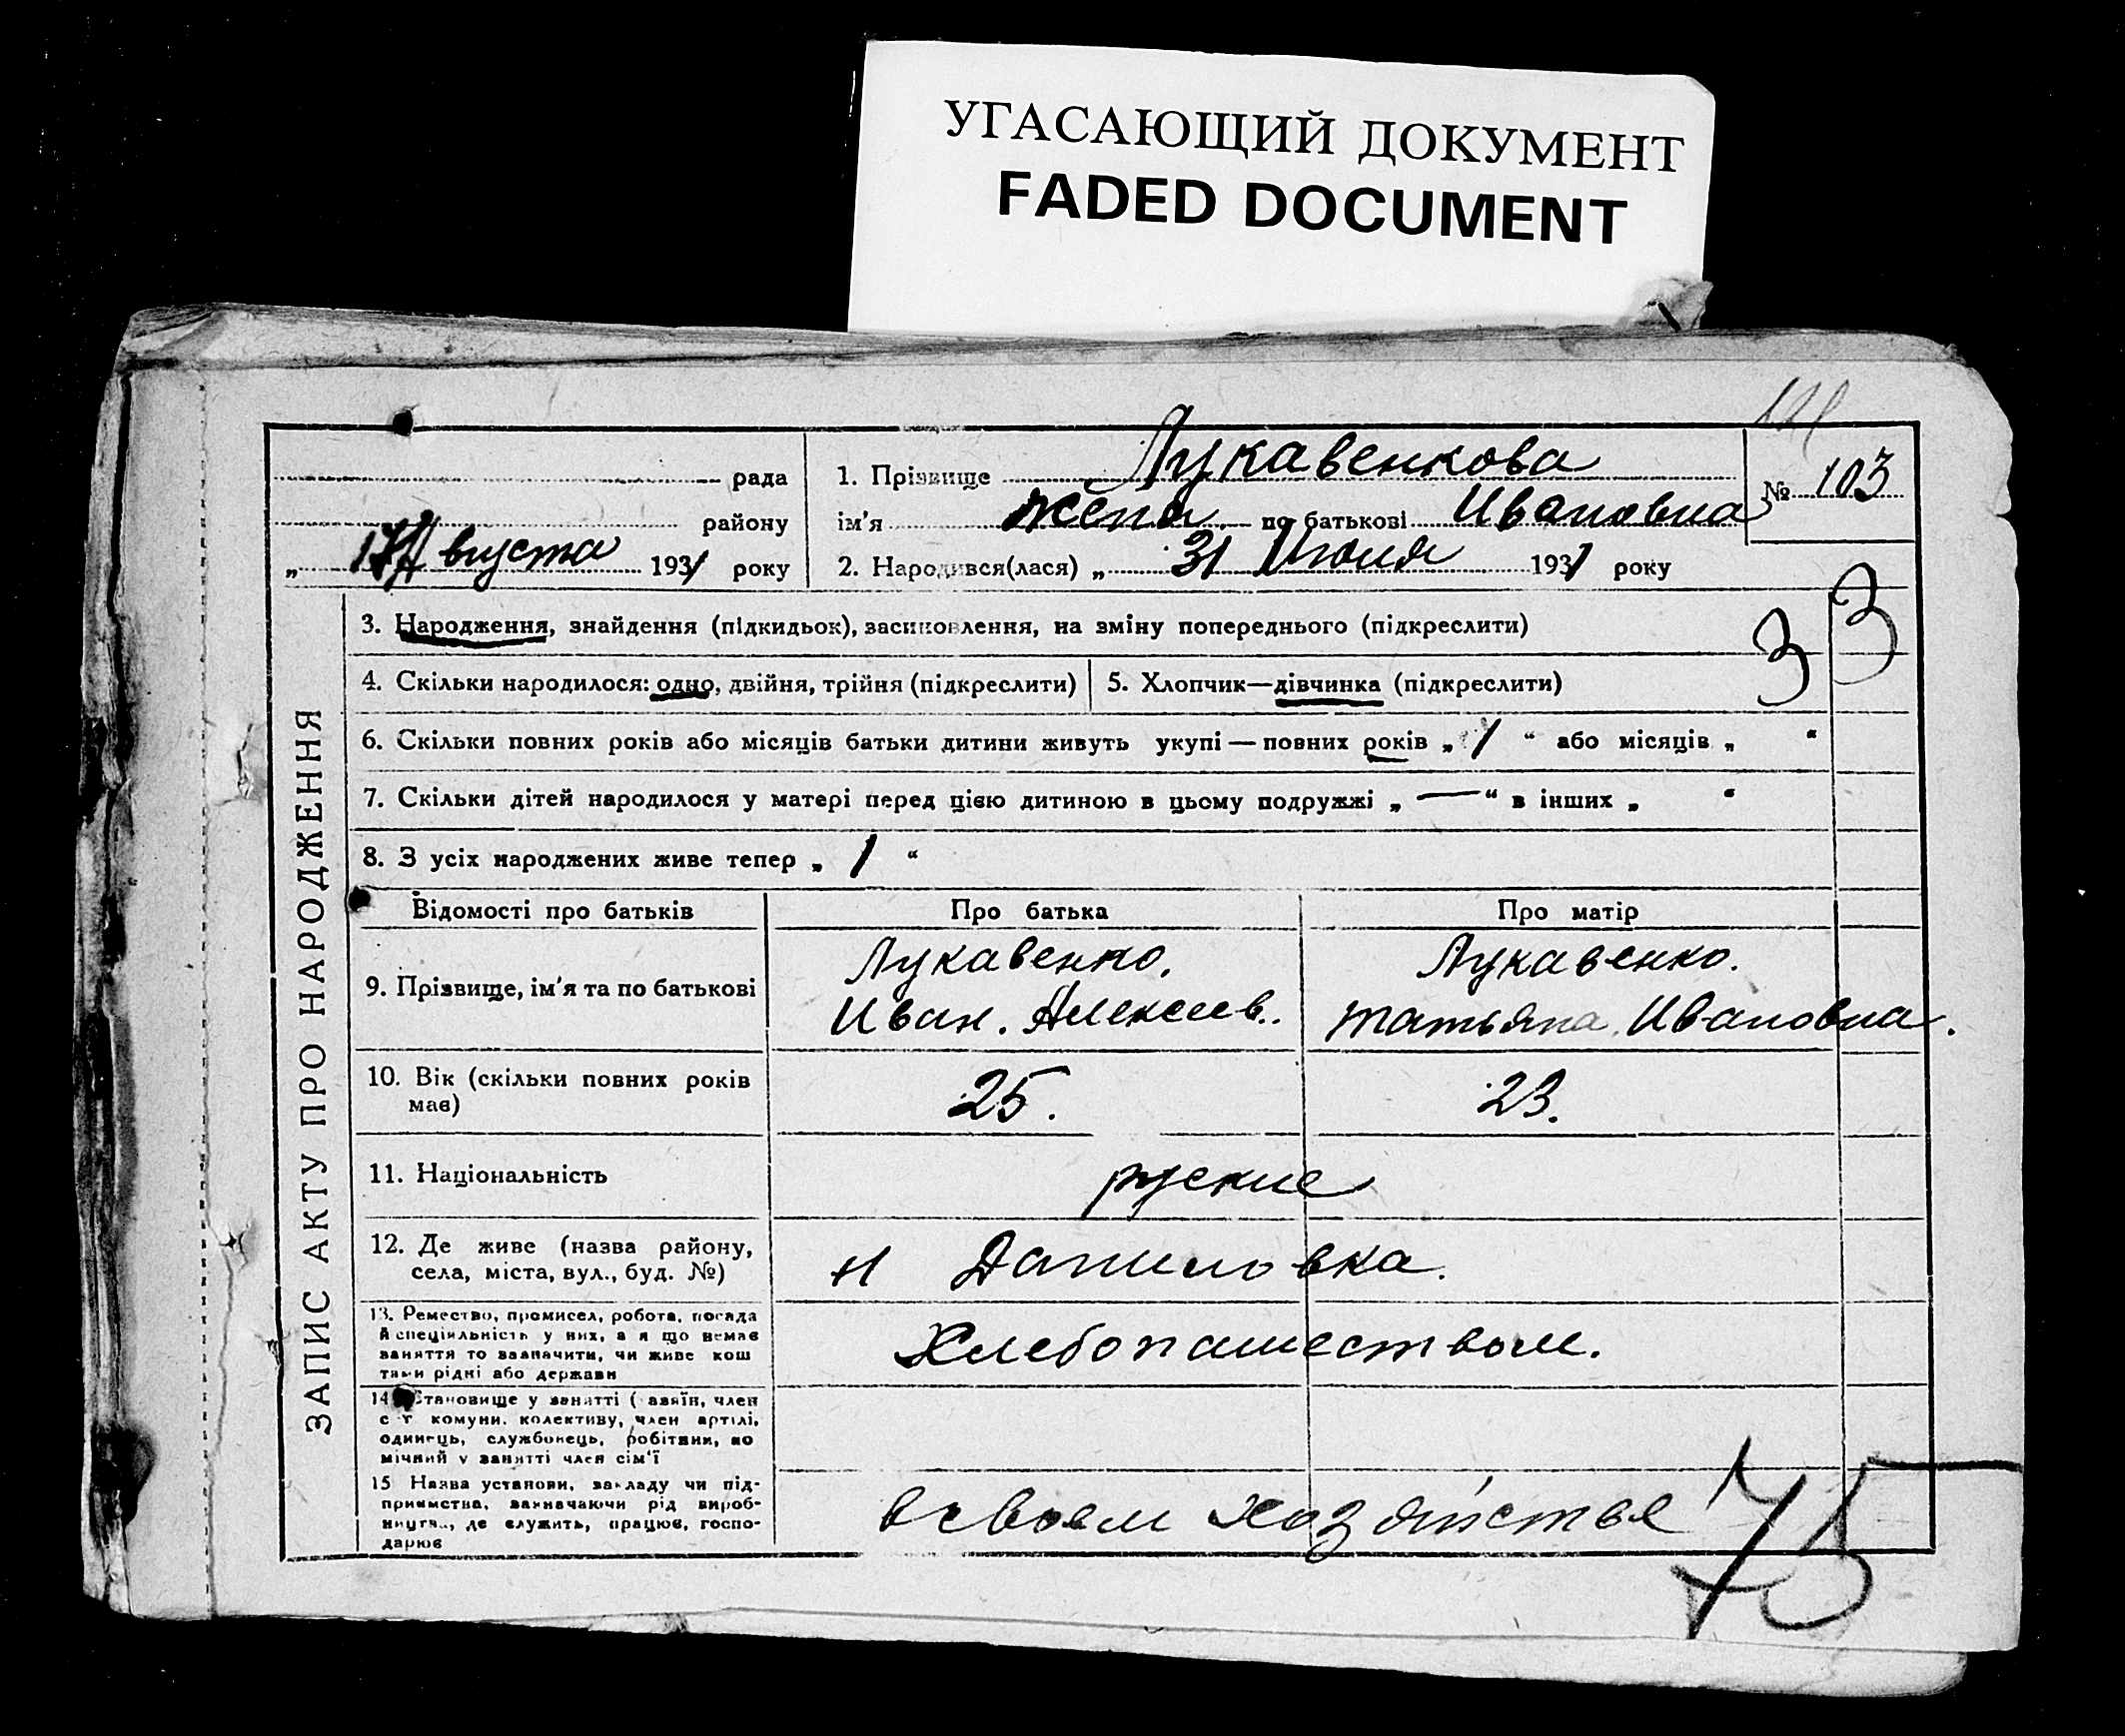 УГАСАЮЩИЙ ДОКУМЕНТ
FADED DOCUMENT
рада
району
„ 17 Августа 1931 року
1. Прізвище Лукавенкова
ім'я Жена по батькові Ивановна
2. Народився(лася) „ 31 Июля 1931 року
№ 103
ЗАПИС АКТУ ПРО НАРОДЖЕННЯ
3. Народження, знайдення (підкидьок), засиновлення, на зміну попереднього (підкреслити)
4. Скільки народилося: одно, двійня, трійня (підкреслити)
5. Хлопчик—дівчинка (підкреслити)
3 3
6. Скільки повних років або місяців батьки дитини живуть укупі — повних років „ 1 “ або місяців „ “
7. Скільки дітей народилося у матері перед цією дитиною в цьому подружжі „ — “ в інших „ “
8. З усіх народжених живе тепер „ 1 “
Відомості про батьків
Про батька
Про матір
9. Прізвище, ім'я та по батькові
Лукавенко.
Иван. Алексеев.
Лукавенко.
Татьяна Ивановна.
10. Вік (скільки повних років
має)
25.
23.
11. Національність
руские
12. Де живе (назва району,
села, міста, вул., буд. №)
н Даниловка.
13. Ремество, промисел, робота, посада
й спеціяльність у них, а я що немає
заняття то зазначити, чи живе кош
тами рідні або держави
Хлебопашеством.
14. Становище у занятті (хазяїн, член
с г комуни, колективу, член артілі,
одинець, службовець, робітник, по
мічний у занятті член сім'ї
15 Назва установи, закладу чи під-
приємства, зазначаючи рід вироб-
ництва, де служить, працює, госпо-
дарює
в своем хозяйстве
75